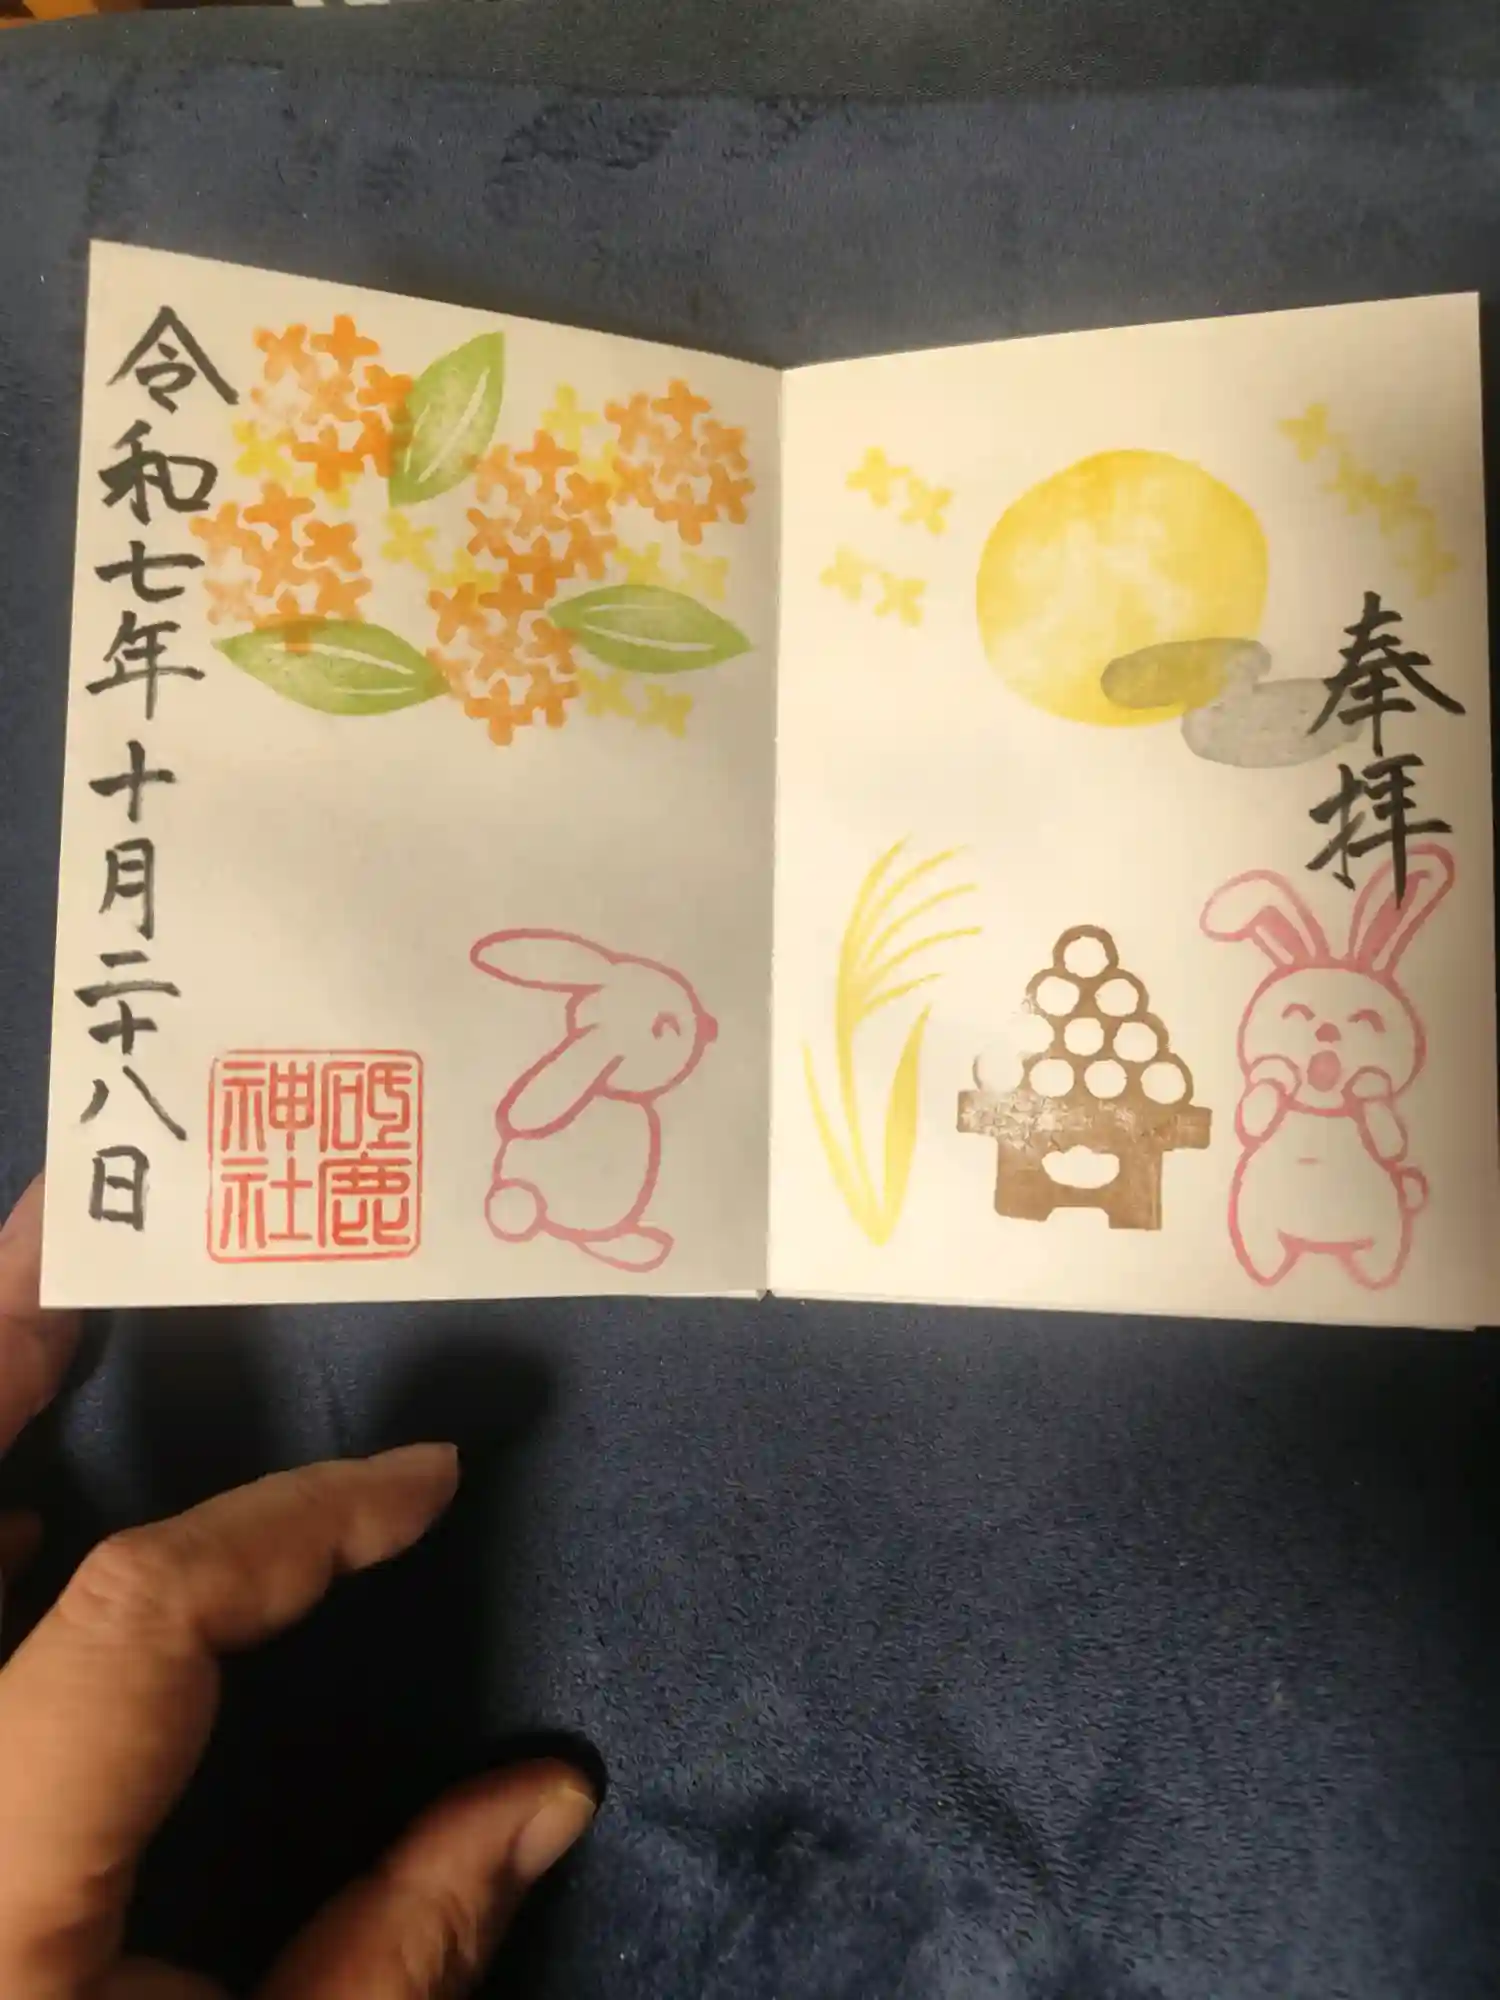 奉拝
令和七年十月二十八日
砥鹿
神社